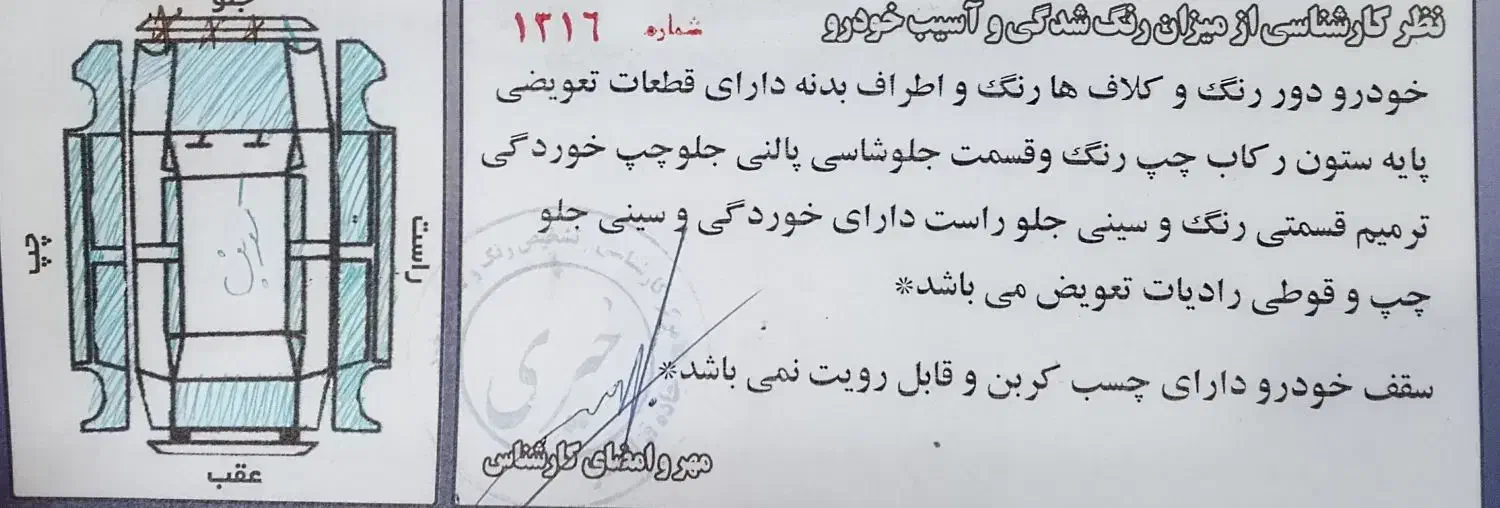 نظر کارشناسی از میزان رنگ شدگی و آسیب خودرو
شماره ۱۳۱۶
خودرو دور رنگ و کلاف ها رنگ و اطراف بدنه دارای قطعات تعویضی
پایه ستون رکاب چپ رنگ وقسمت جلوشاسی پالنی جلوچپ خوردگی
ترمیم قسمتی رنگ و سینی جلو راست دارای خوردگی و سینی جلو
چپ و قوطی رادیات تعویض می باشد*
سقف خودرو دارای چسب کربن و قابل رویت نمی باشد*
مهر و امضای کارشناس
خبری
جلو
چپ
راست
کربن
عقب